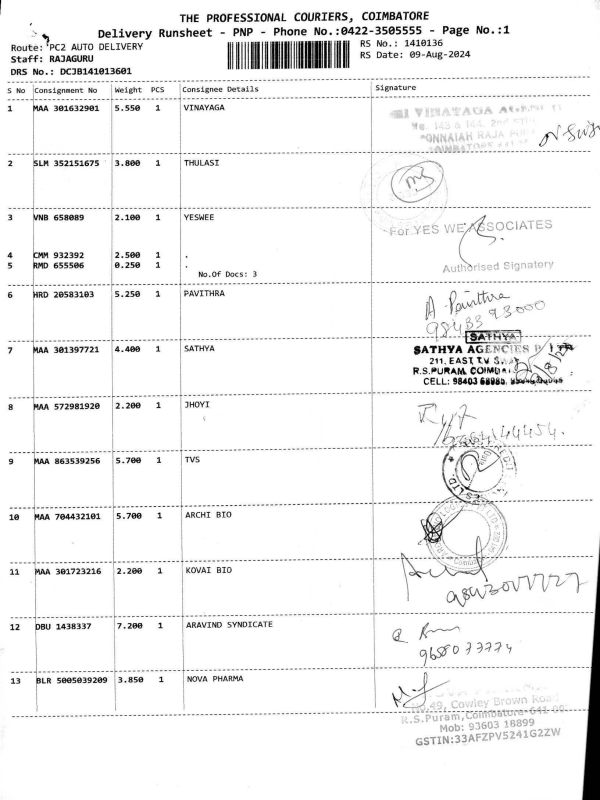 THE PROFESSIONAL COURIERS, COIMBATORE
Delivery Runsheet - PNP - Phone No.:0422-3505555 - Page No.:1
Route: PC2 AUTO DELIVERY
Staff: RAJAGURU
DRS No.: DCJB141013601
RS No.: 1410136
RS Date: 09-Aug-2024
S No Consignment No Weight PCS Consignee Details Signature
1 MAA 301632901 5.550 1 VINAYAGA
VINAYAGA
2 SLM 352151675 3.800 1 THULASI
3 VNB 658089 2.100 1 YESWEE
For YES WE ASSOCIATES
4 CMM 932392 2.500 1 .
5 RMD 655506 0.250 1 .
Authorised Signatory
No.Of Docs: 3
6 HRD 20583103 5.250 1 PAVITHRA
A Pavithra
98433 93000
SATHYA
7 MAA 301397721 4.400 1 SATHYA
SATHYA AGENCIES P
211, EAST T.V.
R.S.PURAM, COIMBA
CELL: 98403
8 MAA 572981920 2.200 1 JHOYI
9 MAA 863539256 5.700 1 TVS
10 MAA 704432101 5.700 1 ARCHI BIO
11 MAA 301723216 2.200 1 KOVAI BIO
12 DBU 1438337 7.200 1 ARAVIND SYNDICATE
13 BLR 5005039209 3.850 1 NOVA PHARMA
49, Cowley Brown Road
R.S.Puram, Coimbatore-641 00
Mob: 93603 18899
GSTIN:33AFZPV5241G2ZW